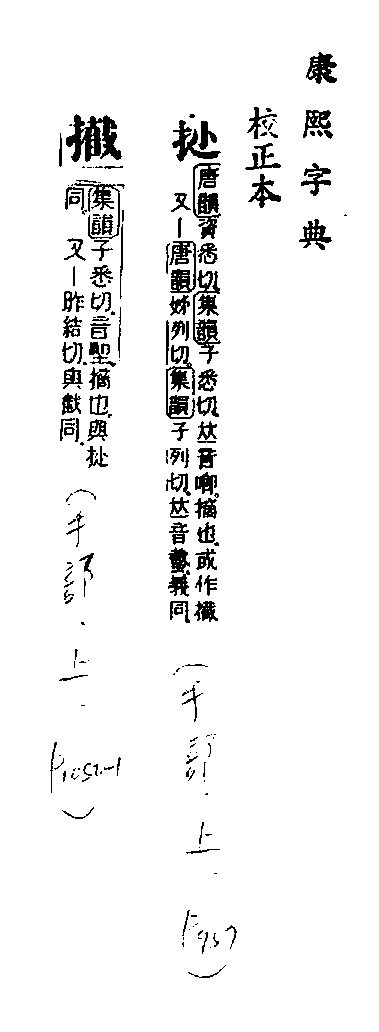 康熙字典
校正本
唐韻資悉切集韻子悉切𠀤音唧摘也或作擮
又丨唐韻列切集韻子列切𠀤音義同
擮
集韻子悉切音堲摘也與
同 又丨昨結切與同
(手部.上.P957)
(手部.上.P1052-1)